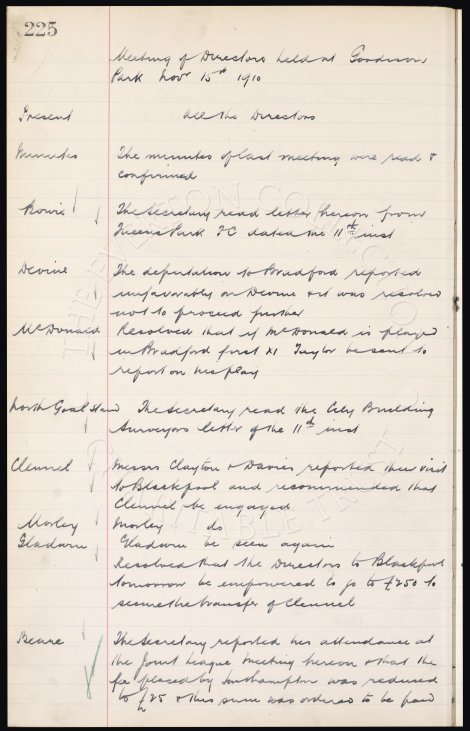 225
Meeting of Directors held at Goodison
Park Novr 15th 1910
Present All the Directors
Minutes The minutes of last meeting were read &
confirmed
Bowie The Secretary read letter hereon from
Queens Park FC dated the 11th inst
Devine The deputation to Bradford reported
unfavorably on Devine & it was resolved
not to proceed further
McDonald Resolved that if McDonald is played
in Bradford first XI Taylor be sent to
report on his play
North Goal Stand The Secretary read the City Building
Surveyors letter of the 11th inst
Clennel Messrs Clayton & Davies reported their visit
to Blackpool and recommended that
Clennel be engaged
Morley Morley do
Gladwin Gladwin be seen again
Resolved that the Directors to Blackpool
tomorrow be empowered to go to £250 to
secure the transfer of Clennel
Beare The Secretary reported his attendance at
the Joint League Meeting hereon & that the
fee placed by Southampton was reduced
to £25 & this sum was ordered to be paid
THE EVERTON COLLECTION
CHARITABLE TRUST